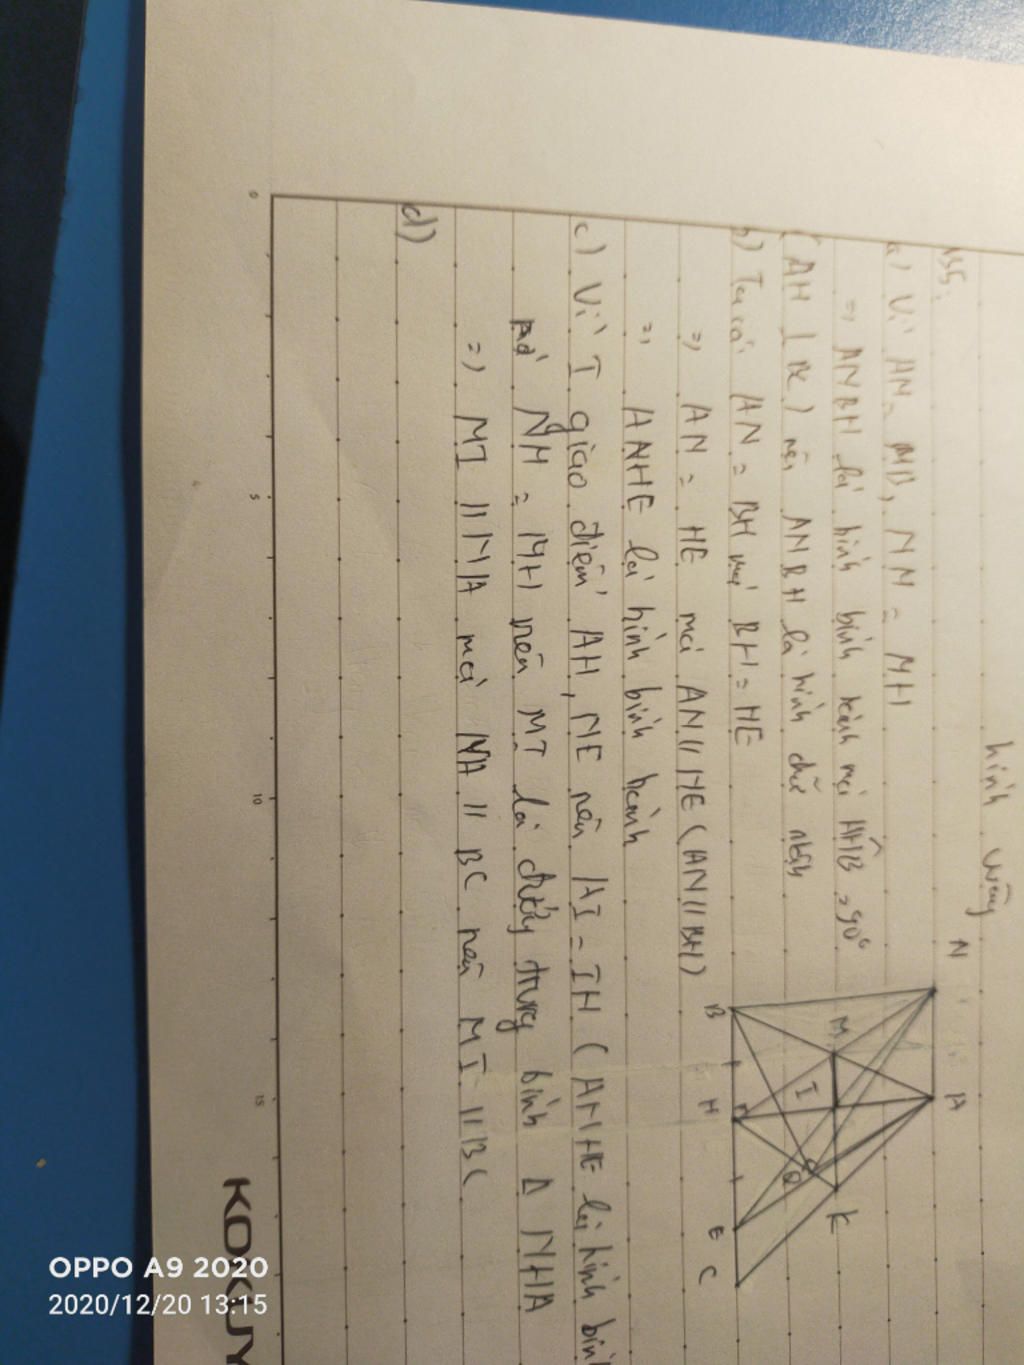 hình vuông
135.
a) Vì AM = MB, NM = MH
=> ANBH là hình bình hành mà AHB = 90°
(AH ⊥ BC) nên ANBH là hình chữ nhật
b) Ta có: AN = BH mà BH = HE
=> AN = HE mà AN // HE (AN // BH)
=> ANHE là hình bình hành
c) Vì I giao điểm AH, NE nên AI = IH (ANHE là hình bình
mà NM = MH nên MI là đường trung bình Δ NHA
=> MI // NA mà NA // BC nên MI // BC
d)
N A
M I Q K
B H E C
0 5 10 15
KOKUY
OPPO A9 2020
2020/12/20 13:15